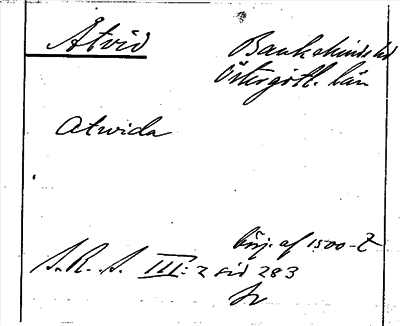 Åtvid
Bankekinds hd
Östergötl. län
Atwida
börj. af 1500-t
S.R.S. III:2 sid 283